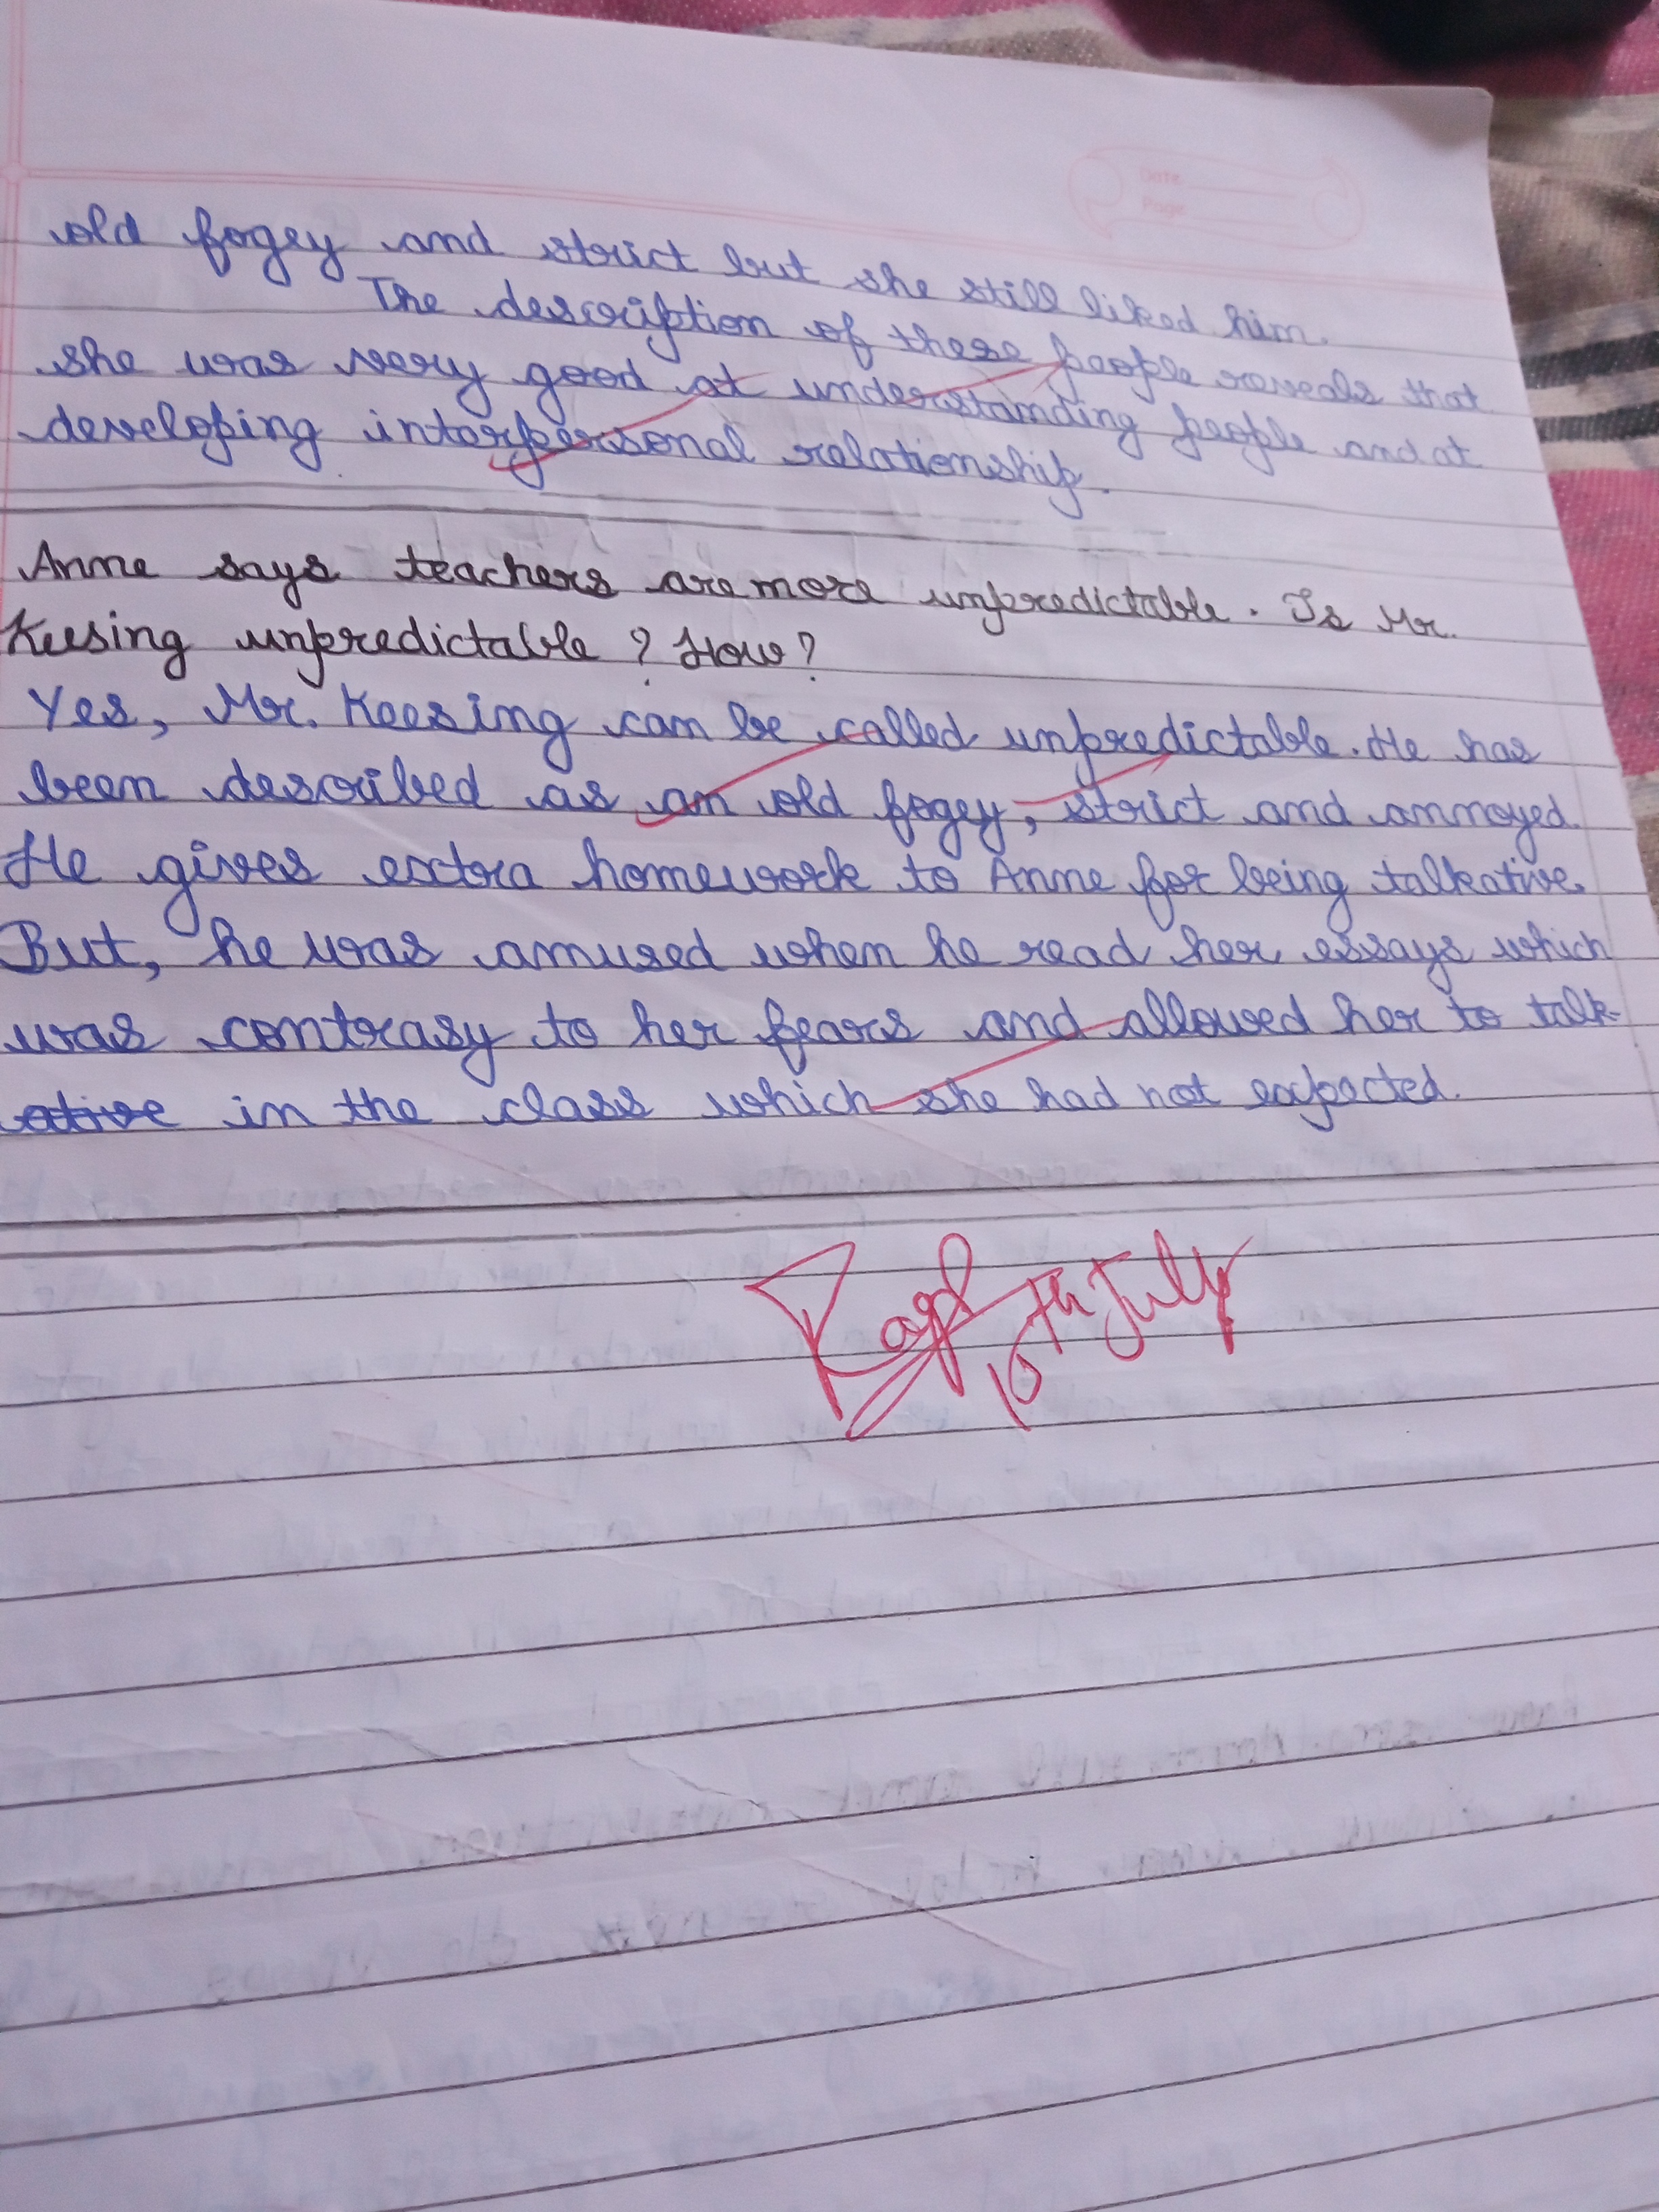 Date
Page
old fogey and strict but she still liked him.
The description of these people reveals that
she was very good at understanding people and at
developing interpersonal relationship.
Anne says teachers are more unpredictable. Is Mr.
Keesing unpredictable? How?
Yes, Mr. Keesing can be called unpredictable. He has
been described as an old fogey, strict and annoyed.
He gives extra homework to Anne for being talkative.
But, he was amused when he read her essays which
was contrasy to her fears and allowed her to talk-
ative in the class which she had not expected.
10th July